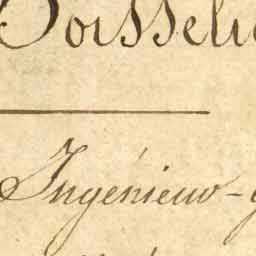 Boisseli
Ingénieur-g